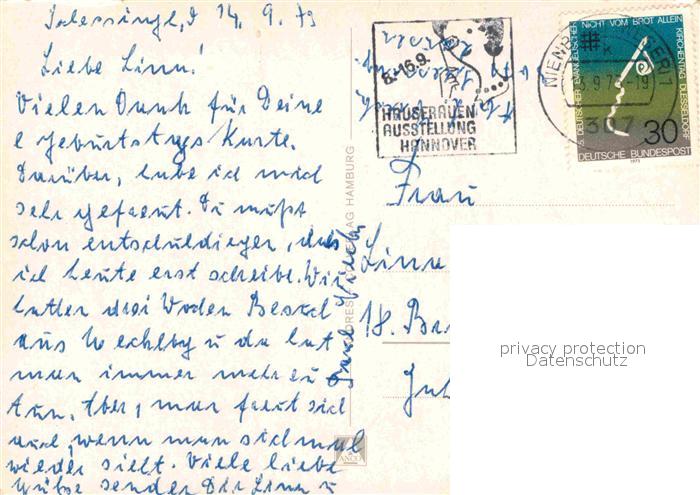 d 14. 9. 73
Liebe Linn!
Vielen Dank für Deine
Geburtstags Karte.
Darüber, habe ich mich
sehr gefreut. Du mußt
schon entschuldigen, das
ich heute erst scheibe. Wir
hatten drei Woden Besuch
aus u da hat
man immer mehr zu
tun. Aber, man freut sich
auch, wenn man sich mal
wieder sieht. Viele liebe
Grüße senden Dir Linn u
8.-16.9.
HAUSFRAUEN
AUSSTELLUNG
HANNOVER
NICHT VOM BROT ALLEIN
15. DEUTSCHER EVANGELISCHER
KIRCHENTAG DÜSSELDORF
30
DEUTSCHE BUNDESPOST
1973
NIENBURG (WESER) 1
307
Frau
Linn
18.
VERLAG HAMBURG
privacy protection
Datenschutz